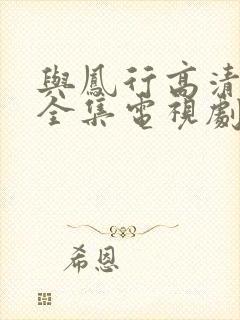 與鳳行高清
全集電視劇
希恩